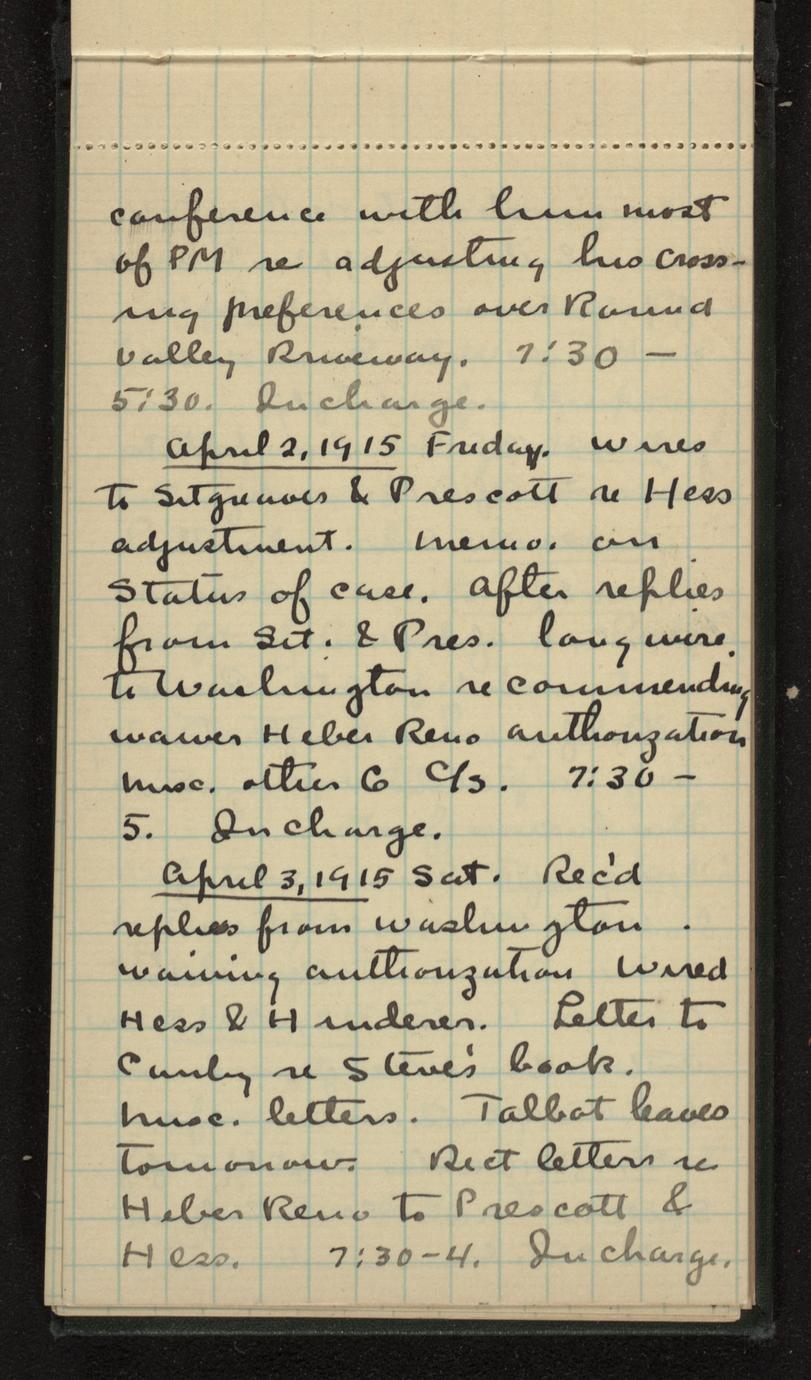 conference with him most
of PM re adjusting his cross-
ing preferences over Round
Valley Driveway. 7:30 -
5:30. In charge.
April 2, 1915 Friday. Wires
to Sitgreaves & Prescott re Hess
adjustment. Memo. on
Status of case. After replies
from Sit. & Pres. long wire
to Washington recommending
waiver Heber Reno authorization
Misc. other G C/s. 7:30 -
5. In charge.
April 3, 1915 Sat. Rec'd
replies from Washington.
waiving authorization Wired
Hess & Hinderer. Letter to
re Steve's book.
Misc. letters. Talbot leaves
tomorrow. letters re
Heber Reno to Prescott &
Hess. 7:30-4. In charge.